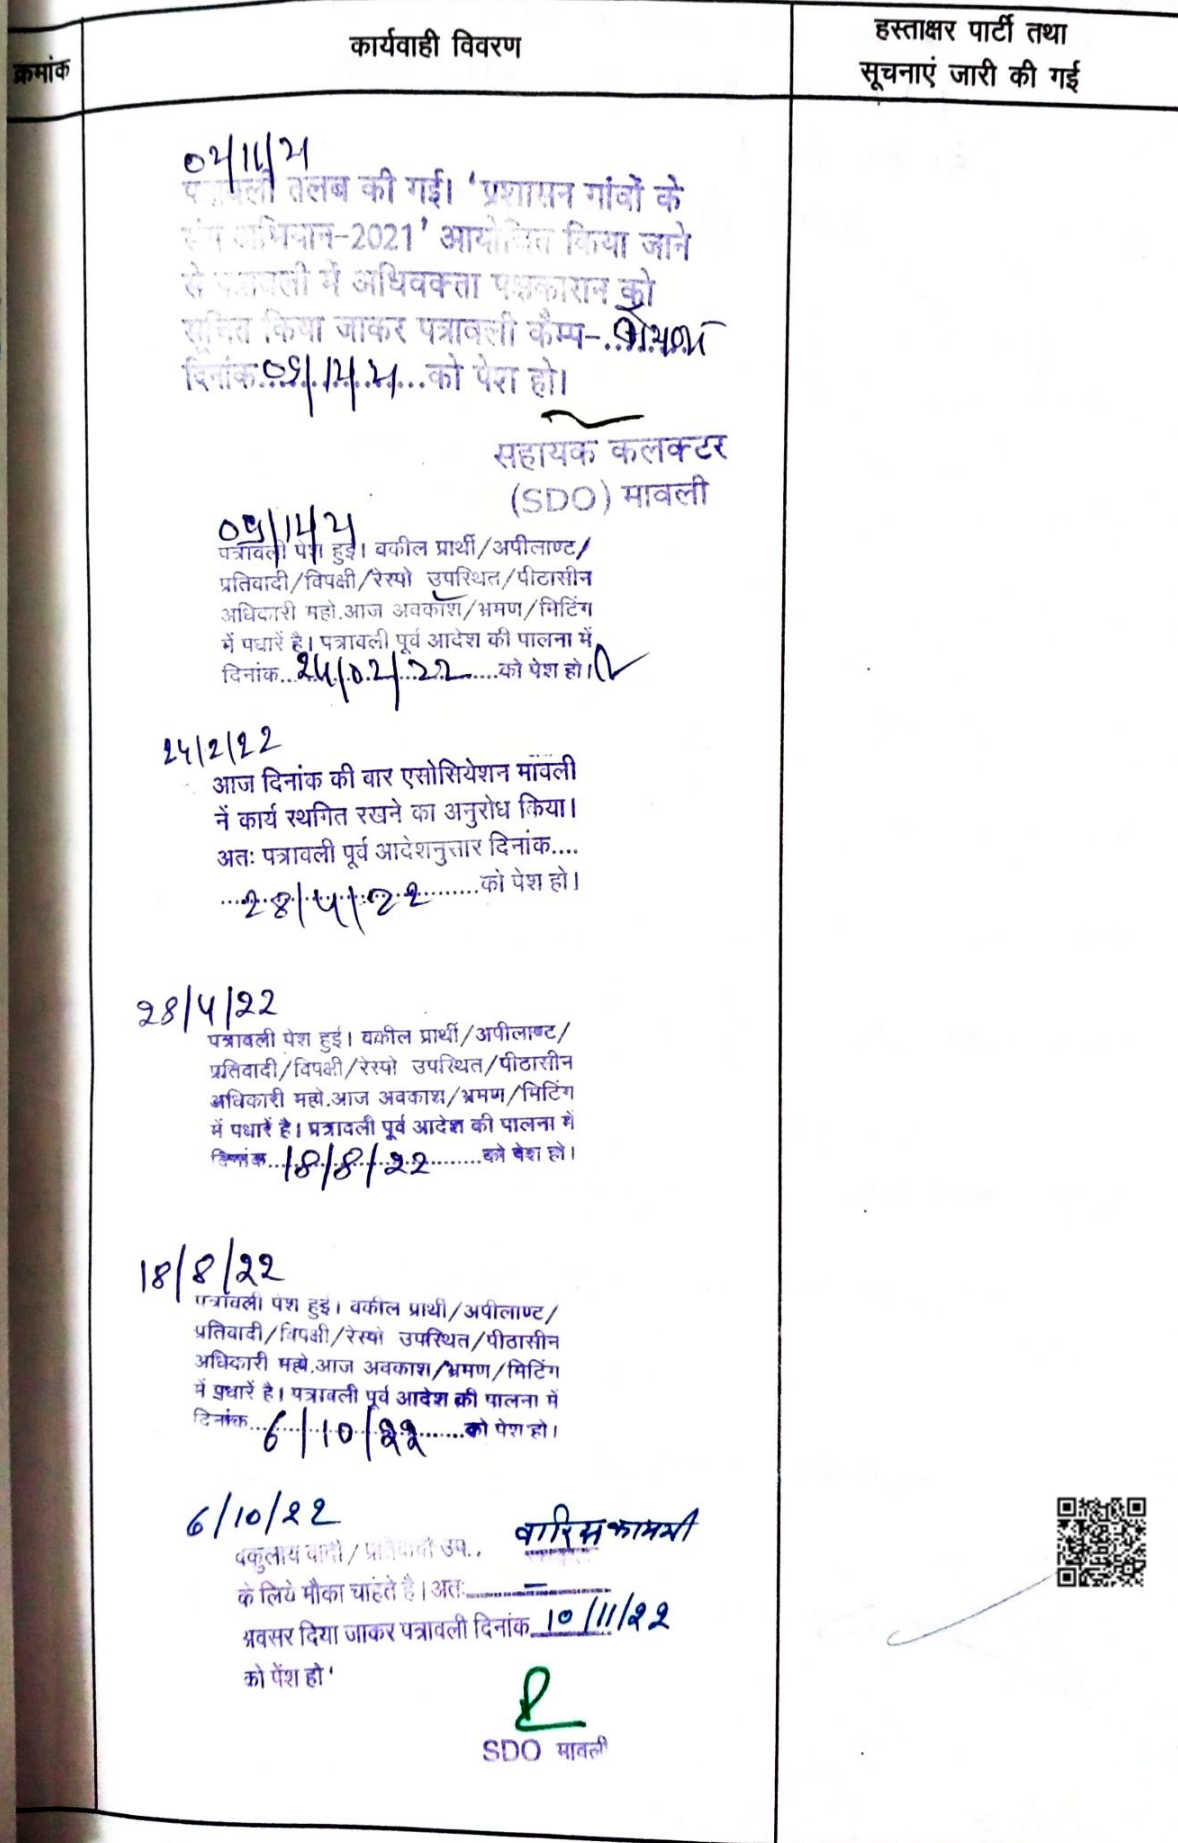 क्रमांक
कार्यवाही विवरण
हस्ताक्षर पार्टी तथा
सूचनाएं जारी की गई
पत्रावली तलब की गई। 'प्रशासन गांवों के
संग अभियान-2021' आयोजित किया जाने
से पत्रावली में अधिवक्ता पक्षकारान को
सूचित किया जाकर पत्रावली कैम्प-
दिनांक को पेश हो।
सहायक कलक्टर
(SDO) मावली
पत्रावली पेश हुई। वकील प्रार्थी/अपीलाण्ट/
प्रतिवादी/विपक्षी/रेस्पो उपस्थित/पीठासीन
अधिकारी महो.आज अवकाश/भ्रमण/मिटिंग
में पधारें है। पत्रावली पूर्व आदेश की पालना में
दिनांक...24/02/22...को पेश हो।
24/2/22
आज दिनांक की बार एसोसियेशन मावली
नें कार्य स्थगित रखने का अनुरोध किया।
अतः पत्रावली पूर्व आदेशनुसार दिनांक....
...28/4/22...को पेश हो।
28/4/22
पत्रावली पेश हुई। वकील प्रार्थी/अपीलाण्ट/
प्रतिवादी/विपक्षी/रेस्पो उपस्थित/पीठासीन
अधिकारी महो.आज अवकाश/भ्रमण/मिटिंग
में पधारें है। पत्रावली पूर्व आदेश की पालना में
दिनांक...18/8/22...को पेश हो।
18/8/22
पत्रावली पेश हुई। वकील प्रार्थी/अपीलाण्ट/
प्रतिवादी/विपक्षी/रेस्पो उपस्थित/पीठासीन
अधिकारी महो.आज अवकाश/भ्रमण/मिटिंग
में पधारें है। पत्रावली पूर्व आदेश की पालना में
दिनांक...6/10/22...को पेश हो।
6/10/22
वकुलाय वादी/प्रतिवादी उप.. वारिस कायमी
के लिये मौका चाहते है। अतः
अवसर दिया जाकर पत्रावली दिनांक 10/11/22
को पेंश हो
SDO मावली